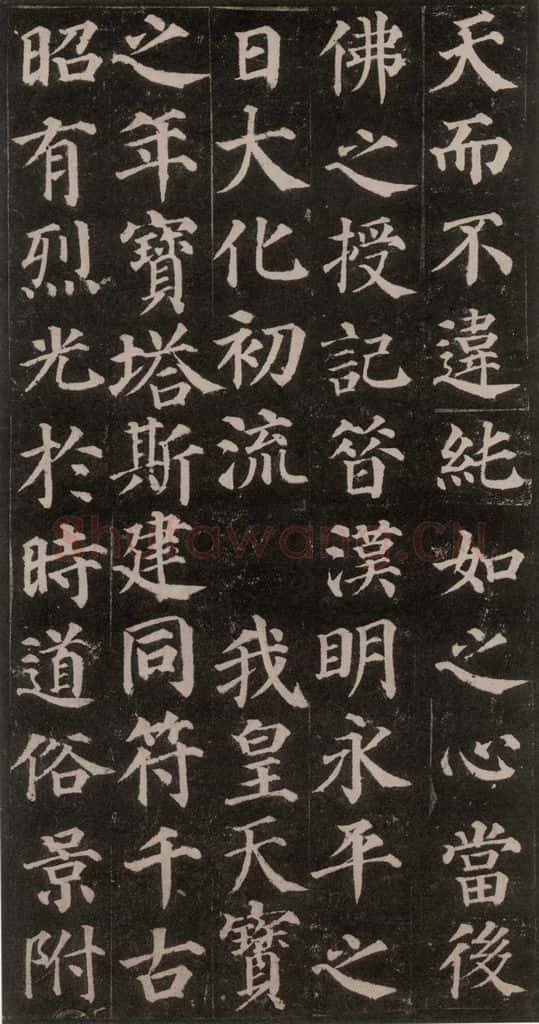 天而不違純如之心當後
佛之授記昔漢明永平之
日大化初流 我皇天寶
之年寶塔斯建同符千古
昭有烈光於時道俗景附
Shufawang.cn